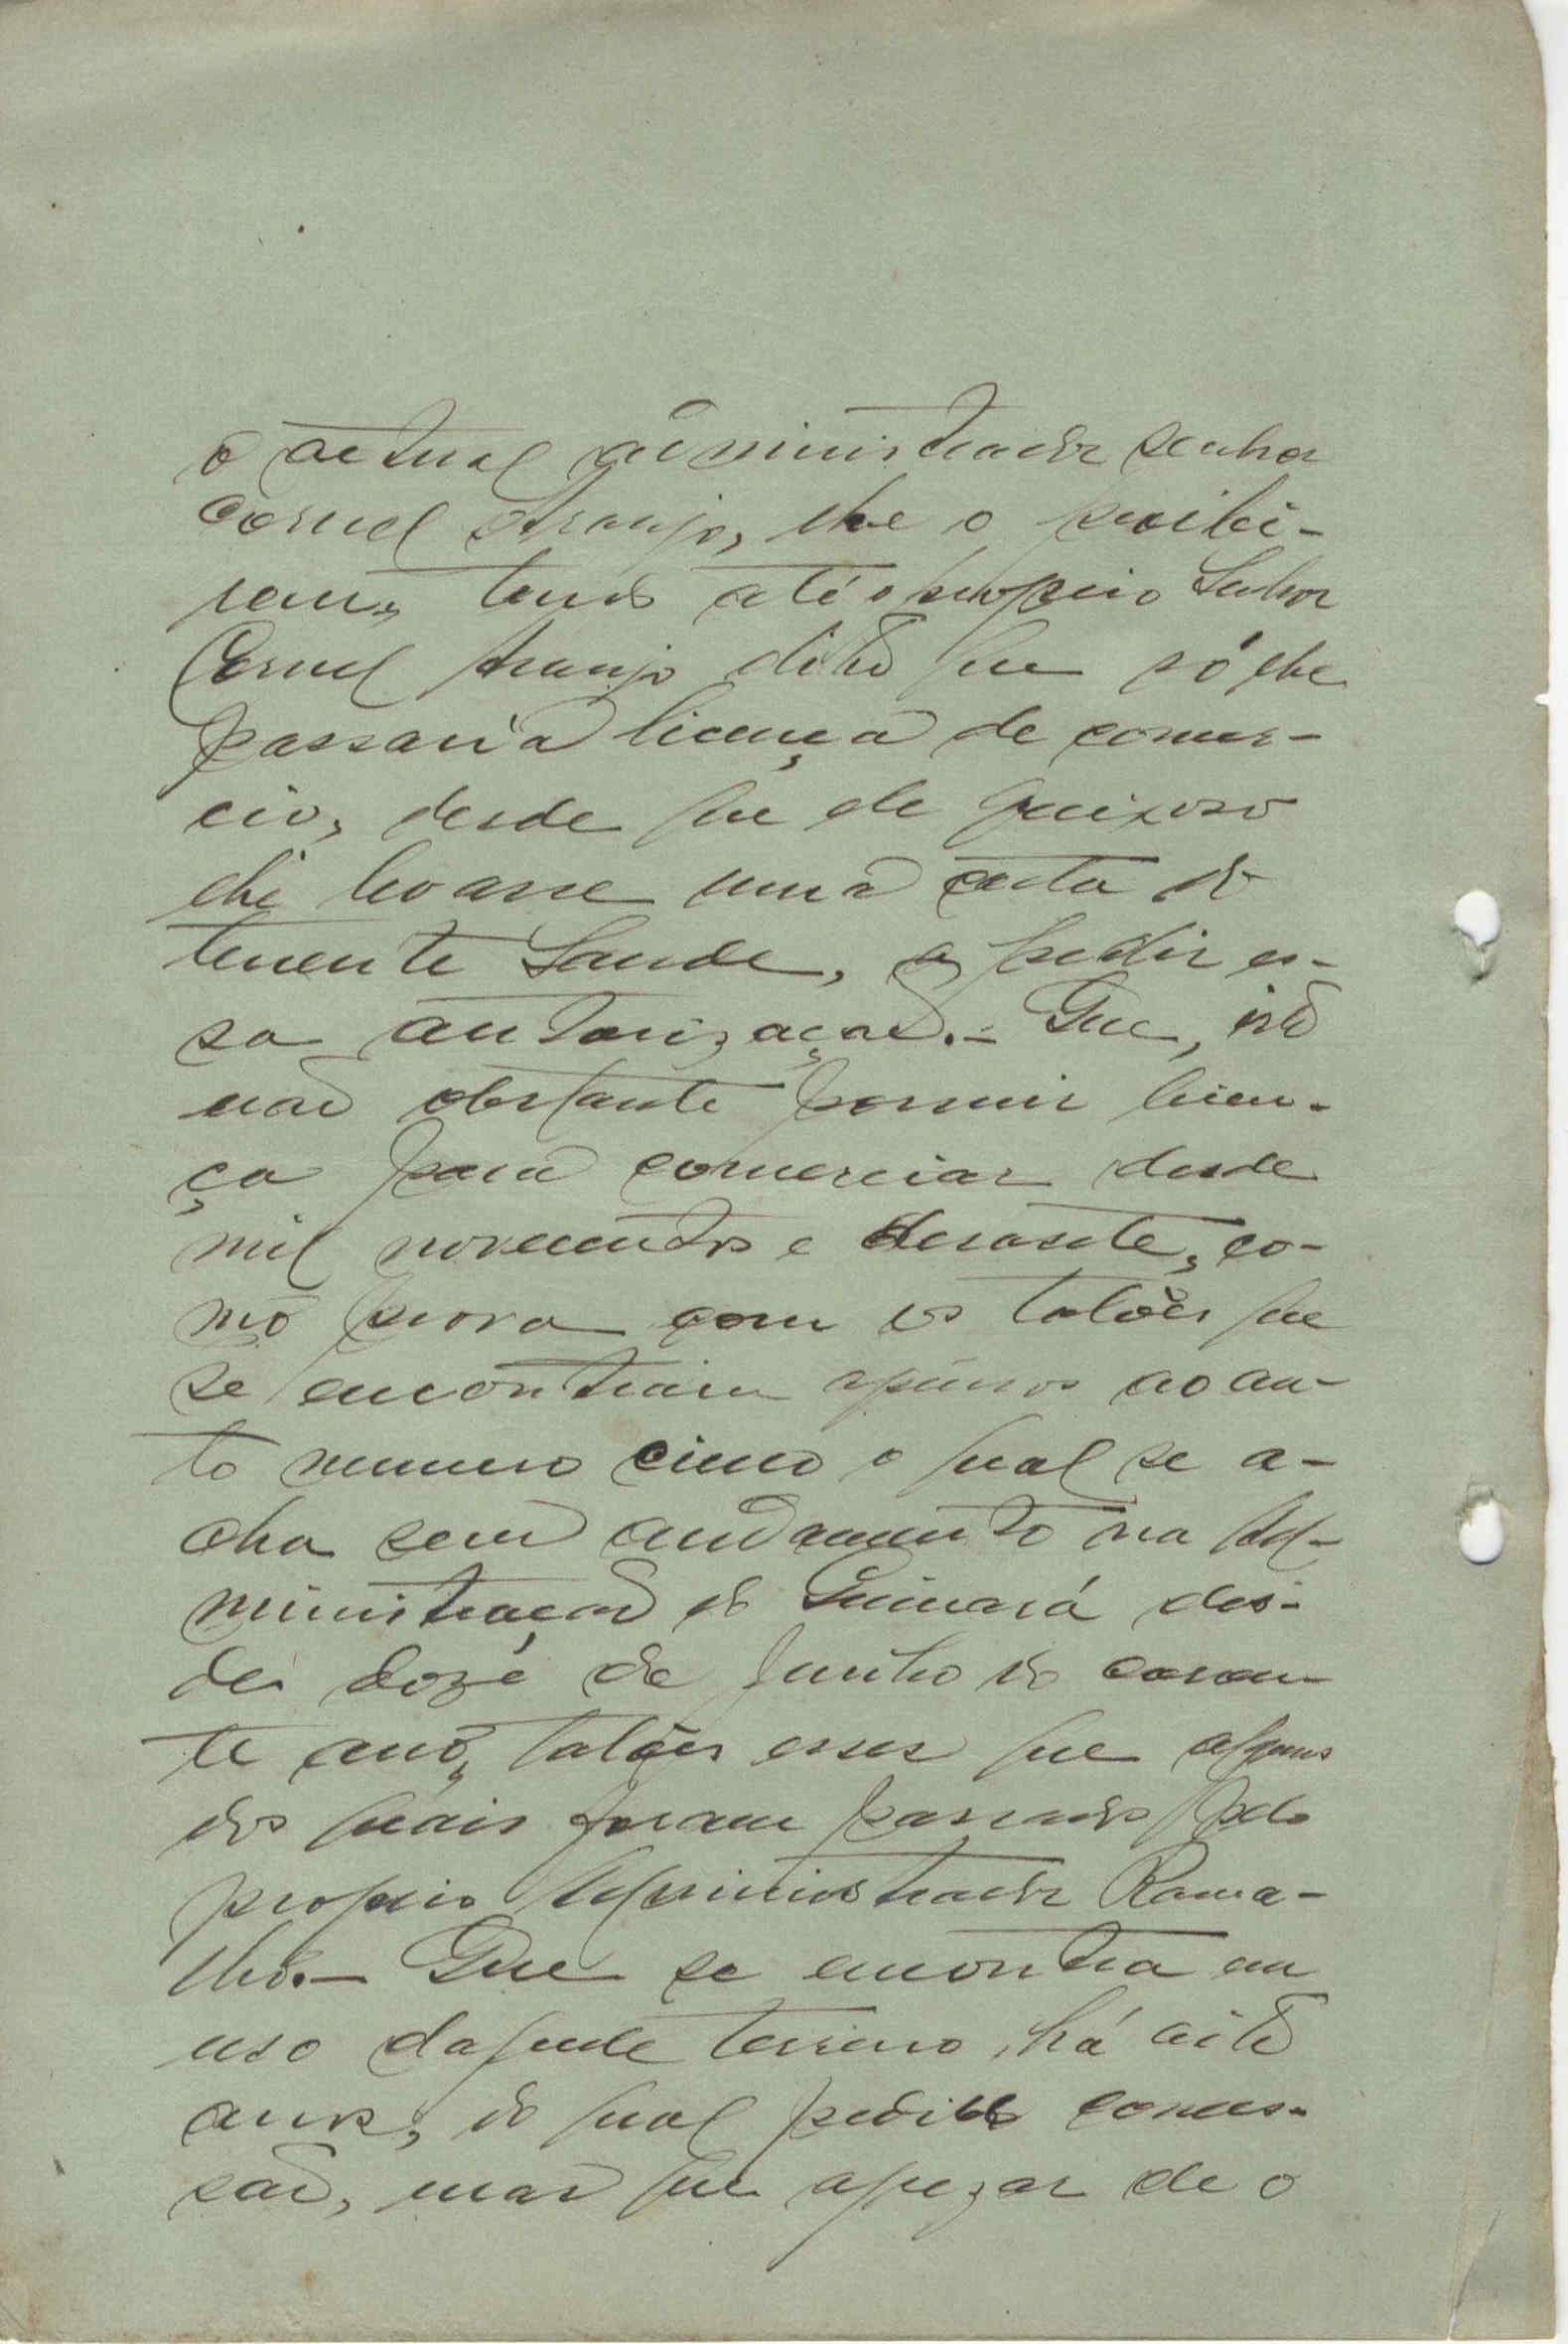 o actual administrador senhor
Cornel Araujo, lhe o proibi-
ram, tendo até o proprio Senhor
Cornel Araujo dito que só lhe
passaria licença de comer-
cio, desde que ele queixoso
lhe levasse uma carta do
tenente Saude, a pedir es-
sa autorização.- Que, isto
não obstante possuir licen-
ça para comerciar desde
mil novecentos e desasete, co-
mo prova com os talões que
se encontram apensos ao au-
to numero cinco o qual se a-
cha sem andamento na Ad-
ministração do Guinará des-
de doze de Junho do corren-
te ano, talões esses que alguns
dos quais foram passados pelo
proprio Administrador Rama-
lho.- Que se encontra em
uso daquele terreno, há oito
anos, do qual pediu conces-
são, mas que apezar de o